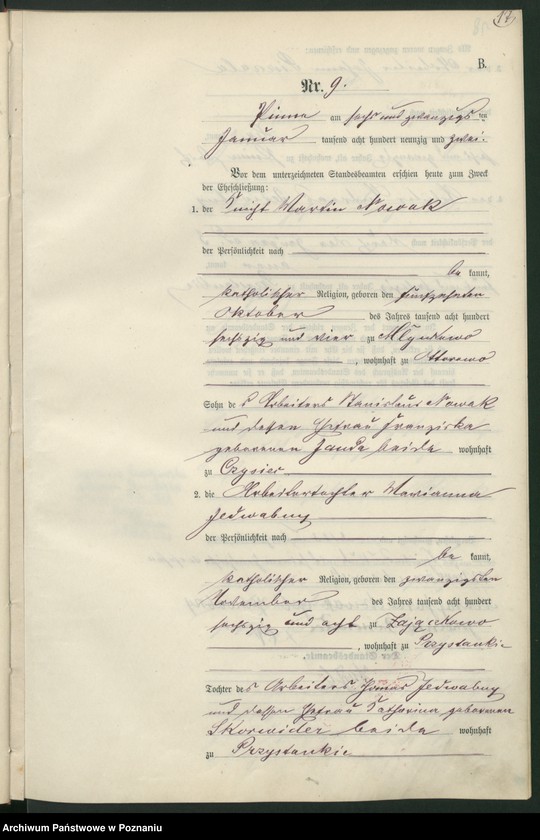 17
B.
Nr. 9.
Pinne am sechs und zwanzigsten
Januar tausend acht hundert neunzig und zwei.
Vor dem unterzeichneten Standesbeamten erschien heute zum Zweck
der Eheschließung:
1. der Knecht Martin Nowak
der Persönlichkeit nach
be kannt,
katholischer Religion, geboren den fünfzehnten
Oktober des Jahres tausend acht hundert
sechszig und vier zu Mlynkowo
, wohnhaft zu Ottorowo
Sohn des Arbeiters Stanislaus Nowak
und dessen Ehefrau Franziska
geborenen Janda beide wohnhaft
zu Czysiec
2. die Arbeitertochter Marianna
Jedwabny
der Persönlichkeit nach
be kannt,
katholischer Religion, geboren den zwanzigsten
November des Jahres tausend acht hundert
sechszig und acht zu Zajączkowo
, wohnhaft zu Przystankie
Tochter des Arbeiters Thomas Jedwabny
und dessen Ehefrau Katharina geborenen
Skorwider beide wohnhaft
zu Przystankie
Archiwum Państwowe w Poznaniu